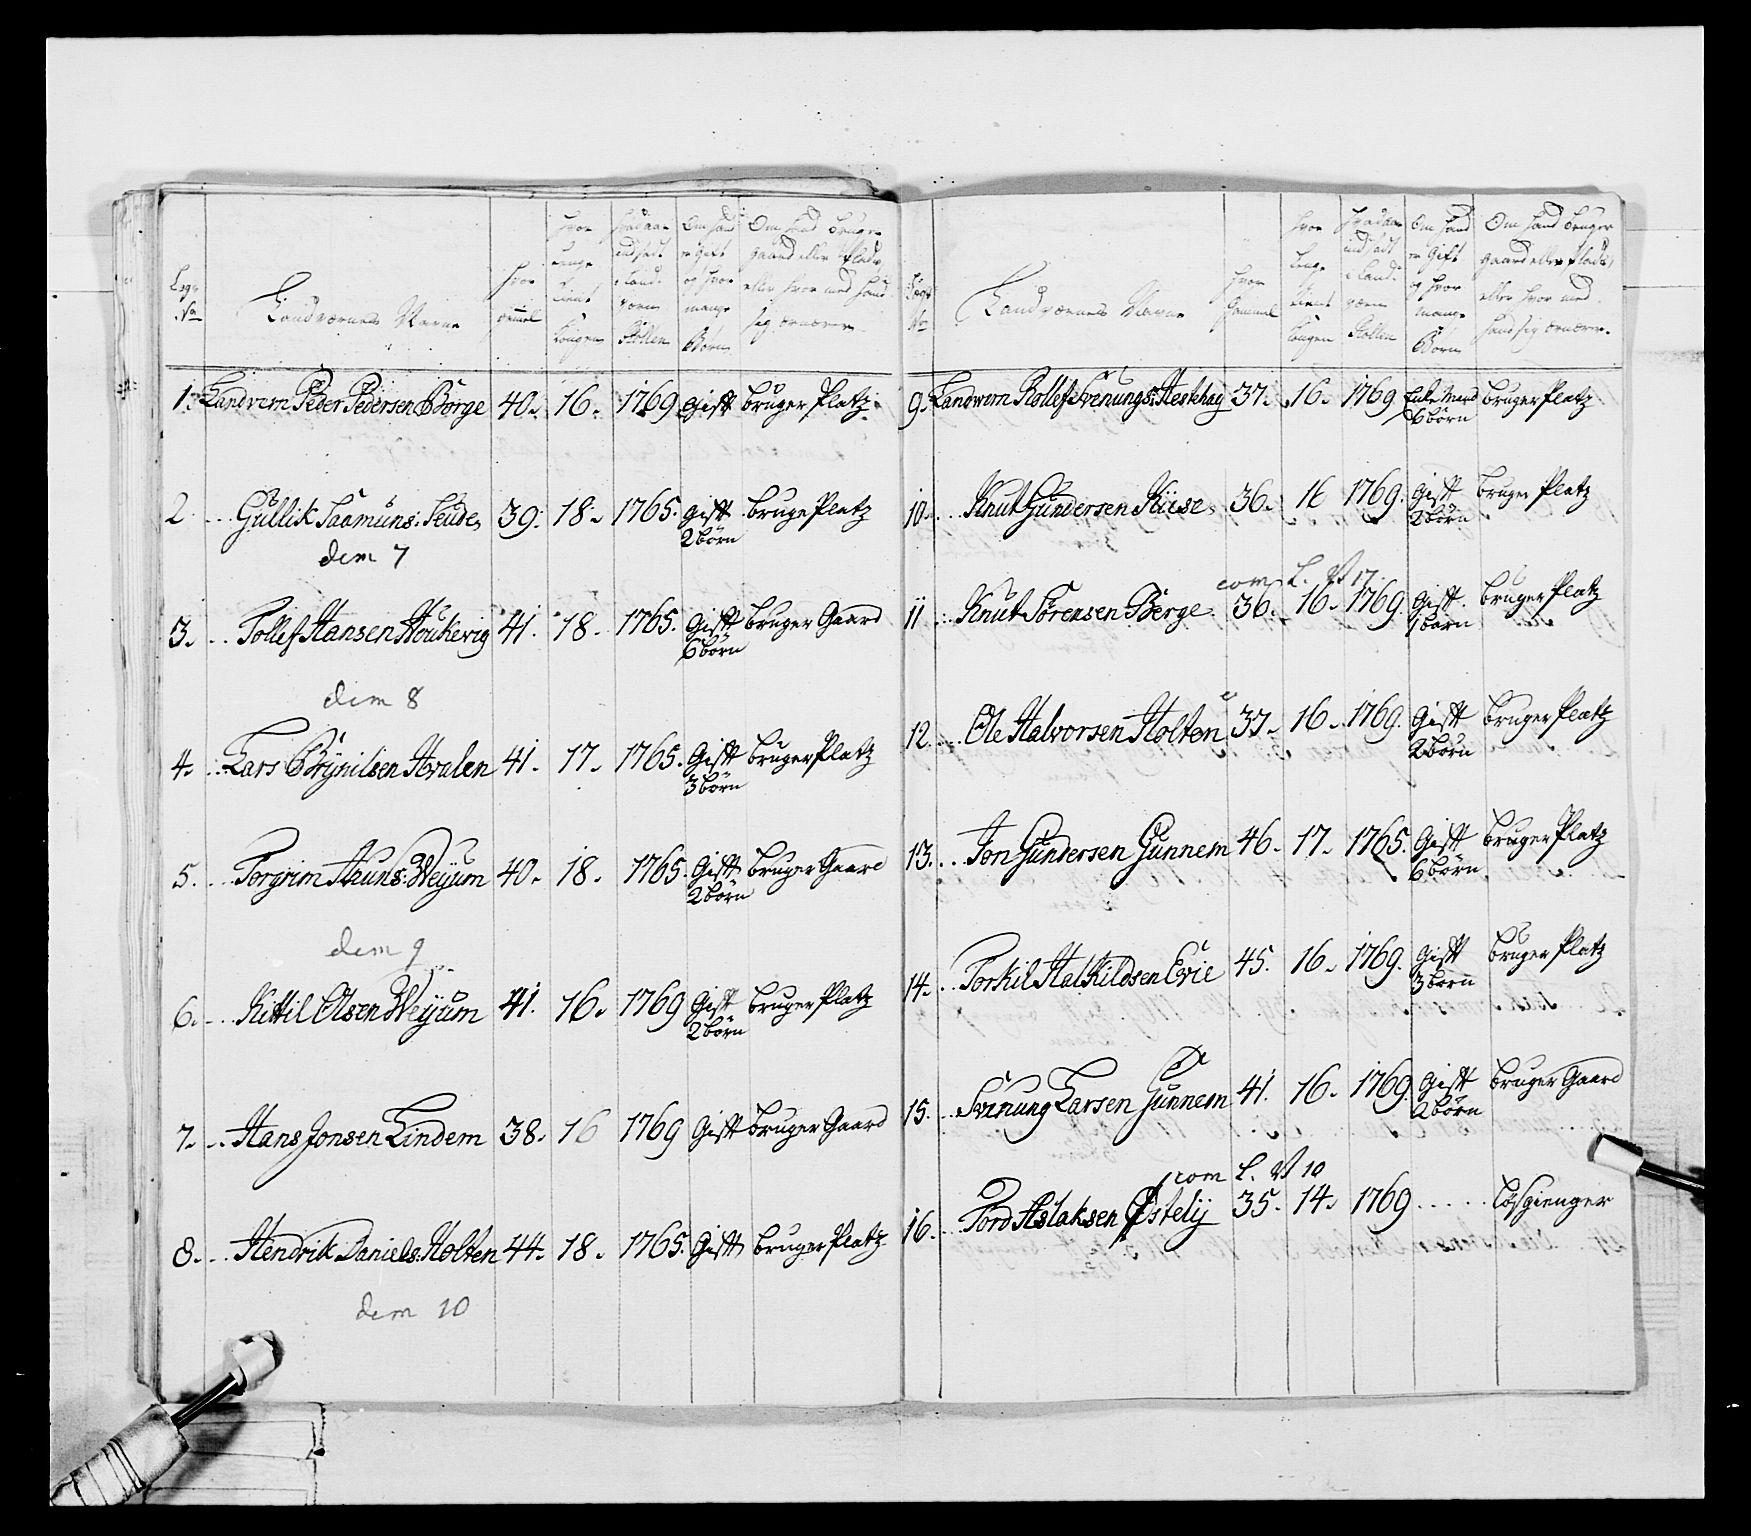 Legs No
Landværnets Navne
hvor gammel
hvor lenge tient Kongen
hvad aar indsadt i Landværn Rollen
Om hand er gift og hvor mange Børn
Om hand bruger gaard eller Plads, eller hvor med hand sig ernærer
1. Landvern Peder Pedersen Borge 40. 16. 1769 Gift bruger Platz.
2 Gullik Saamuns: Seude, 39. 18. 1765. Gift 2 börn bruge Platz
dem 7
3. Tollef Hansen Houkerig 41. 18. 1765. Gift 6 börn bruger Gaard
dem 8
4. Lars Brynilsen Hvalen 41. 17. 1765. Gift 3 börn bruger Platz
5. Torgrim Auns: Weyum 40. 18. 1765. Gift 2 börn bruger Gaard
dem 9
6. Kittil Olsen Weyum 41. 16. 1769 Gift 2 börn bruger Platz
7. Hans Jonsen Lindem 38. 16 1769 Gift bruger Gaard
8. Hendrik Daniels: Holten 44. 18. 1765. Gift bruger Platz
dem 10
Legs No
Landværnets Navne
hvor Gammel
hvor lenge tient Kongen
hvad aar indsadt i Landværn Rollen
Om hand er Gift og hvor mange Børn
Om hand bruger gaard eller Plads, eller hvor med hand sig ernærer.
9. Landwern Rollef Svenungs: 37. 16. 1769 Enke Mand 6 börn bruger Platz
10. Knut Gundersen 36. 16 1769. Gift 2 börn bruger Platz
com L. No 17.
11 Knut Sörensen Berge. 36. 16. 1769 Gift. 1 barn bruger Platz
12. Ole Halvorsen Holten 37. 16. 1769. Gift 2 börn bruger Platz
13. Jon Gundersen Gunnem 46. 17. 1765. Gift 6 börn bruger Platz
14. Torkil Halkildsen Evie 45. 16. 1769. Gift 3 börn bruger Platz
15. Svenung Larsen Gunnem 41. 16. 1769. Gift 2 börn bruger Gaard
com L. No 10
16. Tord Aslaksen Östelÿ 35. 14. 1769 ..... lösgienger